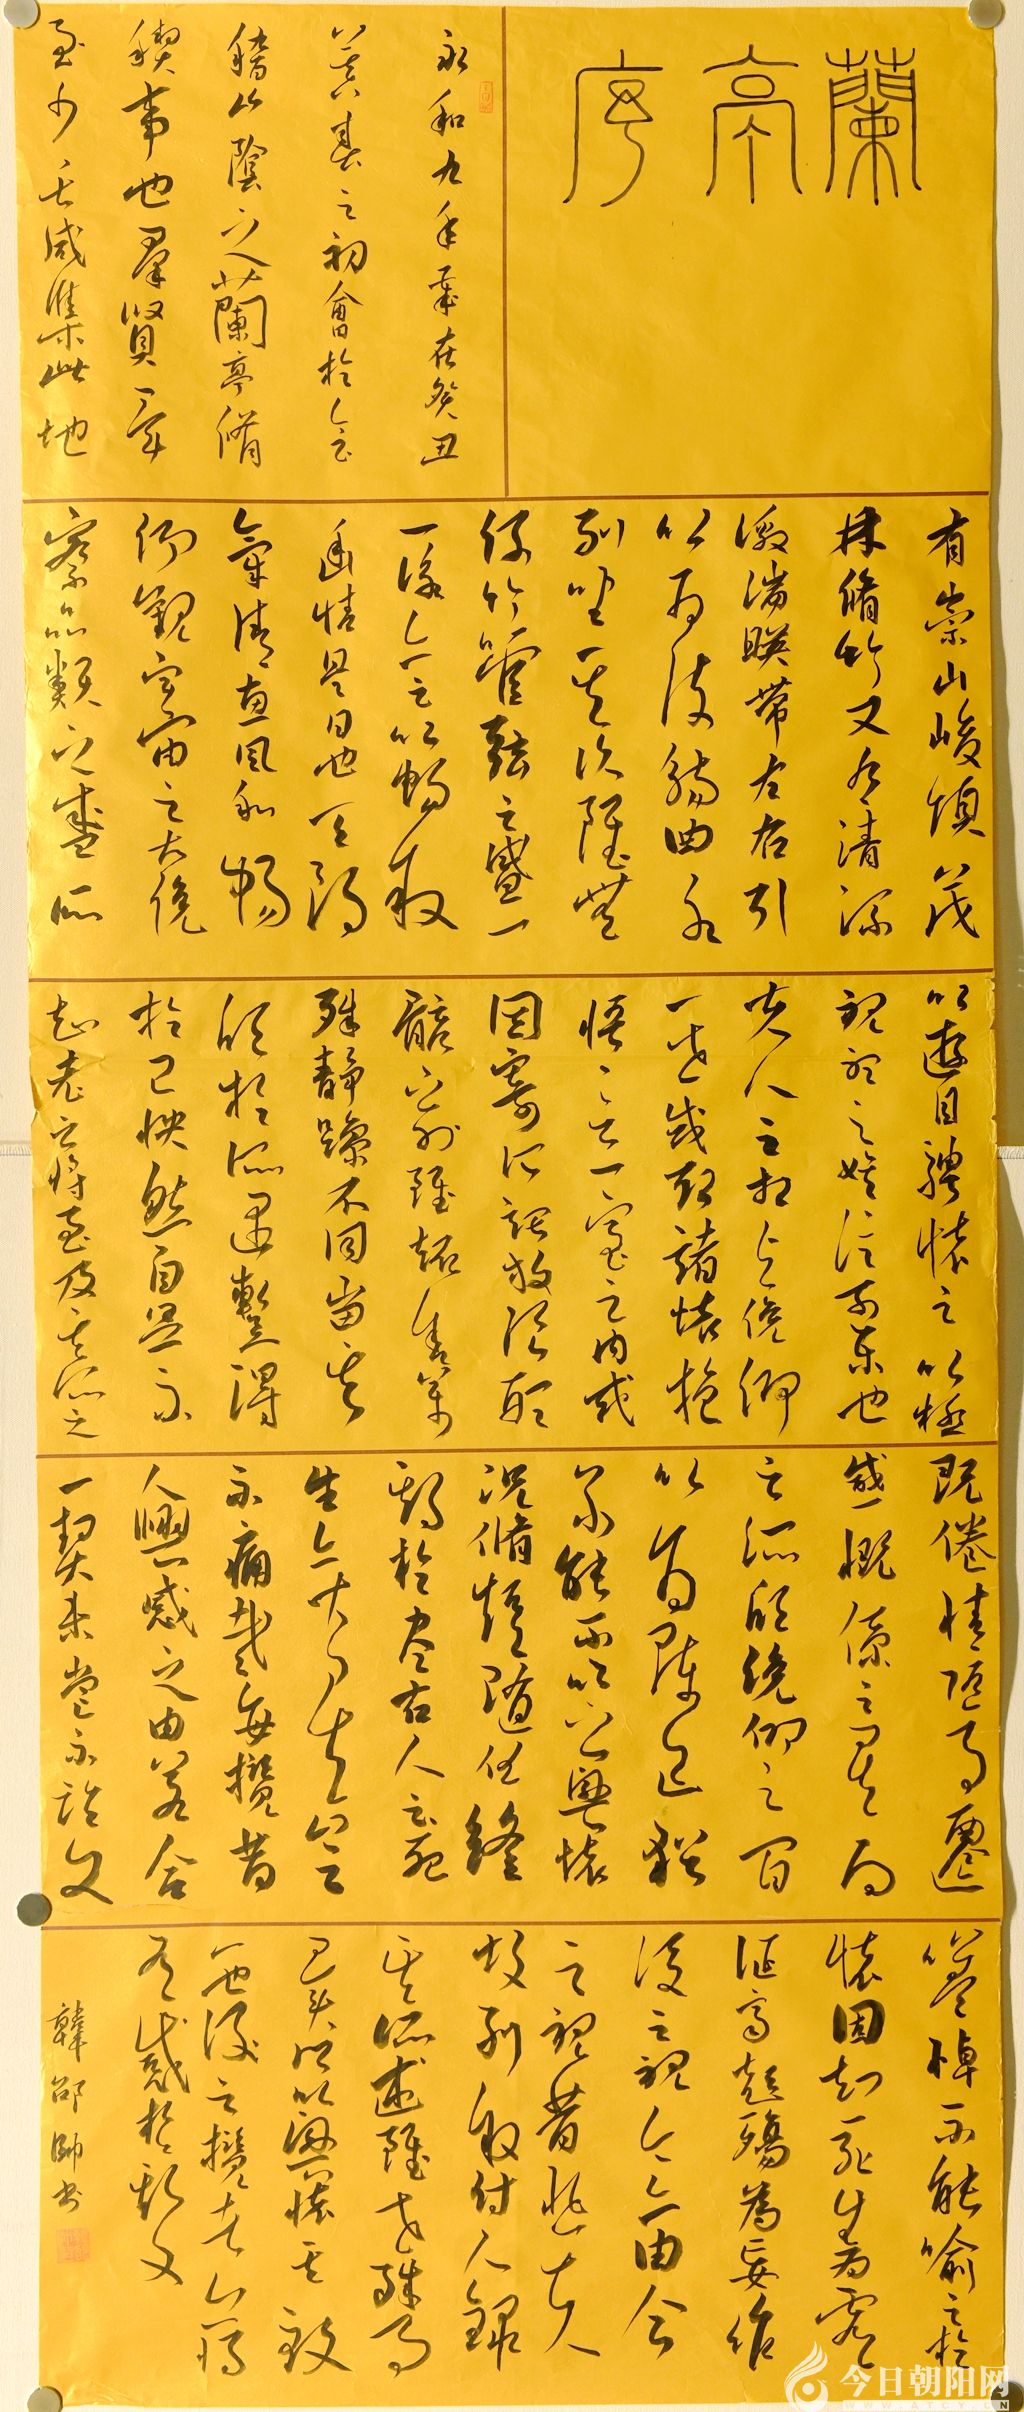 蘭亭序
永和九年歲在癸丑
暮春之初會於會
稽山陰之蘭亭脩
禊事也羣賢畢
至少長咸集此地
有崇山峻領茂
林脩竹又有清流
激湍暎帶左右引
以為流觴曲水
列坐其次雖無
絲竹管弦之盛一
一詠亦足以暢敘
幽情是日也天朗
氣清惠風和暢
仰觀宇宙之大俛
察品類之盛所
以遊目騁懷之以極
視聽之娛信可樂也
夫人之相與俛仰
一世或取諸懷抱
悟言一室之內或
因寄所託放浪形
骸之外雖趣舍萬
殊靜躁不同當其
欣於所遇暫得
於己怏然自足不
知老之將至及其所之
既倦情隨事遷
感慨係之矣向
之所欣俛仰之間
以為陳迹猶
不能不以之興懷
況脩短隨化終
期於盡古人云死
生亦大矣豈
不痛哉每攬昔
人興感之由若合
一契未嘗不臨文
嗟悼不能喻之於
懷固知一死生為虛
誕齊彭殤為妄作
後之視今亦由今
之視昔悲夫
故列敘時人錄
其所述雖世殊事
異所以興懷其致
一也後之攬者亦將
有感於斯文
韓邵帥書
今日朝阳网
WWW.ATCY.CN